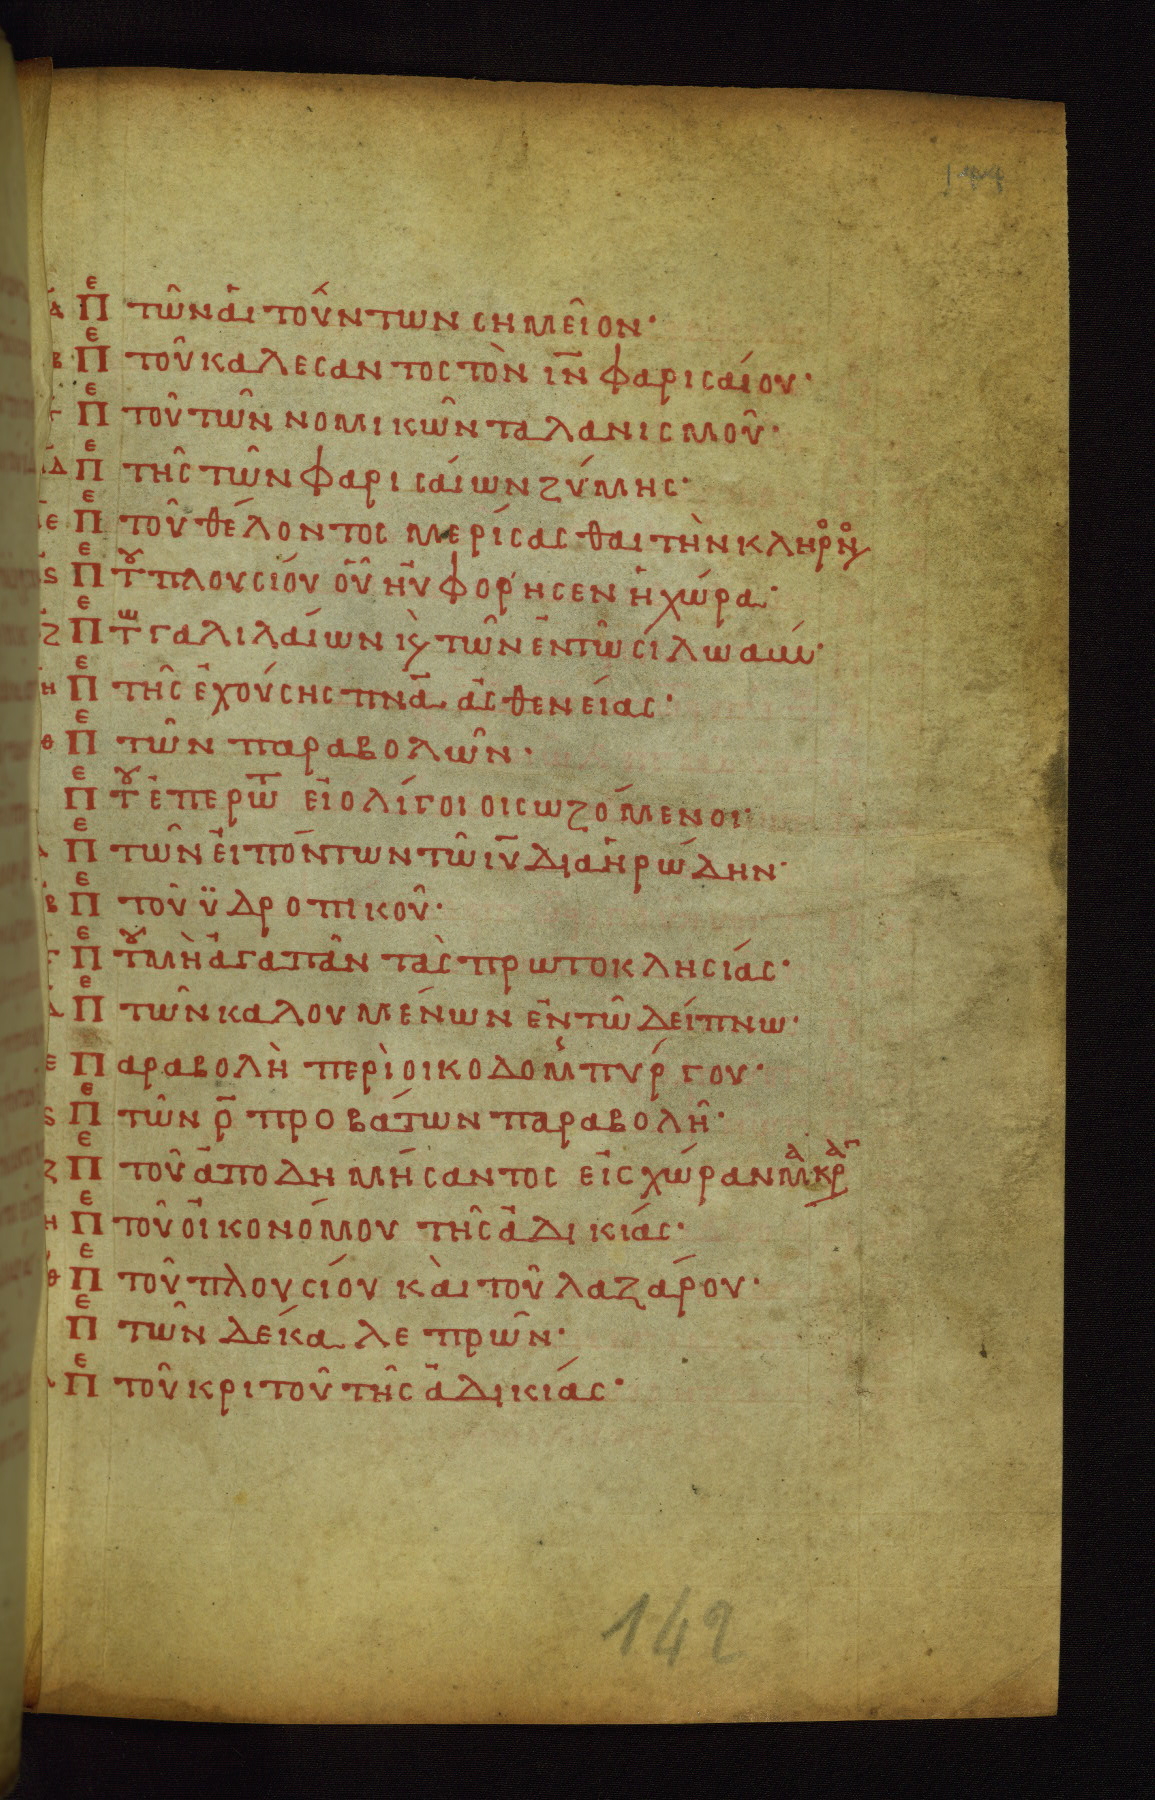 144
Α Πε τῶν αἰτούντων σημεῖον·
Β Πε τοῦ καλεσαντος τὸν ιν̅ φαρισαίου·
Γ Πε τοῦ τῶν νομικῶν ταλανισμοῦ·
Δ Πε τῆς τῶν φαρισαίων ζύμης·
Ε Πε τοῦ θέλοντος μερίσασθαι τὴν κληρον
ς Πε τοῦ πλουσίου οὗ ηὐφόρησεν ἡ χώρα·
Ζ Πε τῶ γαλιλαίων κ̀ τῶν ἐν τῶ σίλωάμ·
Η Πε τῆς ἐχούσης πνα̅ ἀσθενείας·
Θ Πε τῶν παραβολῶν·
Πε τοῦ ἐπερωτ εἰ ολίγοι οι σωζόμενοι·
Α Πε τῶν ειπόντων τῶ ιυ̅ δια ἡρώδην·
Β Πε τοῦ ϋδροπικοῦ·
Γ Πε τοῦ μὴ ἀγαπᾶν τὰς πρωτοκλησίας·
Δ Πε τῶν καλουμένων ἐν τῶ δείπνω·
Ε Παραβολὴ περὶ οικοδομ πύργου·
ς Πε τῶν ρ̅ προβάτων παραβολῆ·
Ζ Πε τοῦ ἀποδημήσαντος εἰς χώραν μακρα
Η Πε τοῦ οἰκονόμου τῆς ἀδικίας·
Θ Πε τοῦ πλουσίου καὶ τοῦ λαζάρου·
Πε τῶν δέκα λεπρῶν·
Πε τοῦ κριτοῦ τῆς ἀδικίας·
142